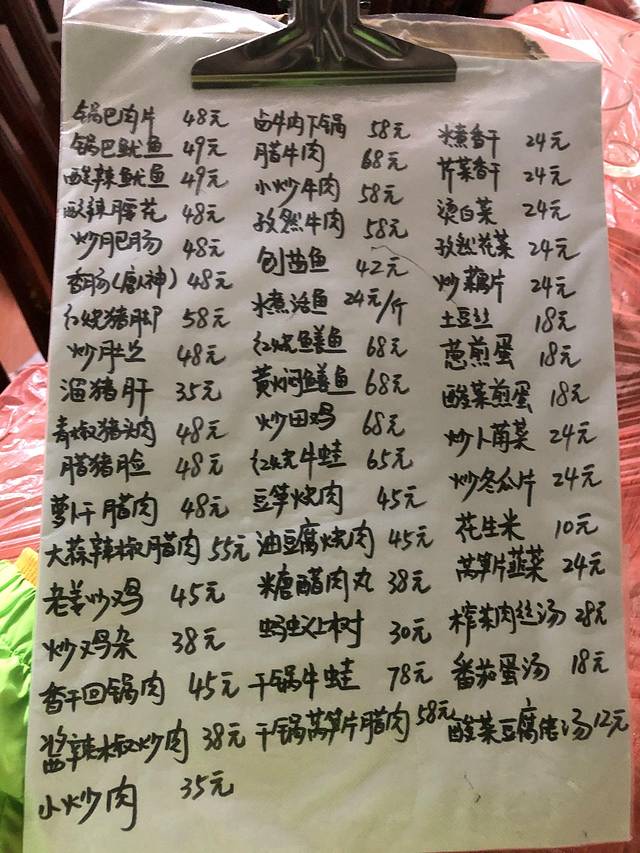 锅巴肉片 48元
锅巴鱿鱼 49元
酸辣鱿鱼 49元
酸辣腰花 48元
炒肥肠 48元
香肠(唐人神) 48元
红烧猪脚 58元
炒肚丝 48元
溜猪肝 35元
青椒猪头肉 48元
腊猪脸 48元
萝卜干腊肉 48元
大蒜辣椒腊肉 55元
老姜炒鸡 45元
炒鸡杂 38元
香干回锅肉 45元
酱辣椒炒肉 38元
小炒肉 35元
卤牛肉下锅 58元
腊牛肉 68元
小炒牛肉 58元
孜然牛肉 58元
刨盐鱼 42元
水煮活鱼 24元/斤
红烧鳝鱼 68元
黄焖鳝鱼 68元
炒田鸡 68元
红烧牛蛙 65元
豆笋烧肉 45元
油豆腐烧肉 45元
糖醋肉丸 38元
蚂蚁上树 30元
干锅牛蛙 78元
干锅莴笋片腊肉 58元
水煮香干 24元
芹菜香干 24元
烫白菜 24元
孜然花菜 24元
炒藕片 24元
土豆丝 18元
葱煎蛋 18元
酸菜煎蛋 18元
炒卜苒菜 24元
炒冬瓜片 24元
花生米 10元
莴笋片蓝菜 24元
榨菜肉丝汤 28元
番茄蛋汤 18元
酸菜豆腐佬汤 12元